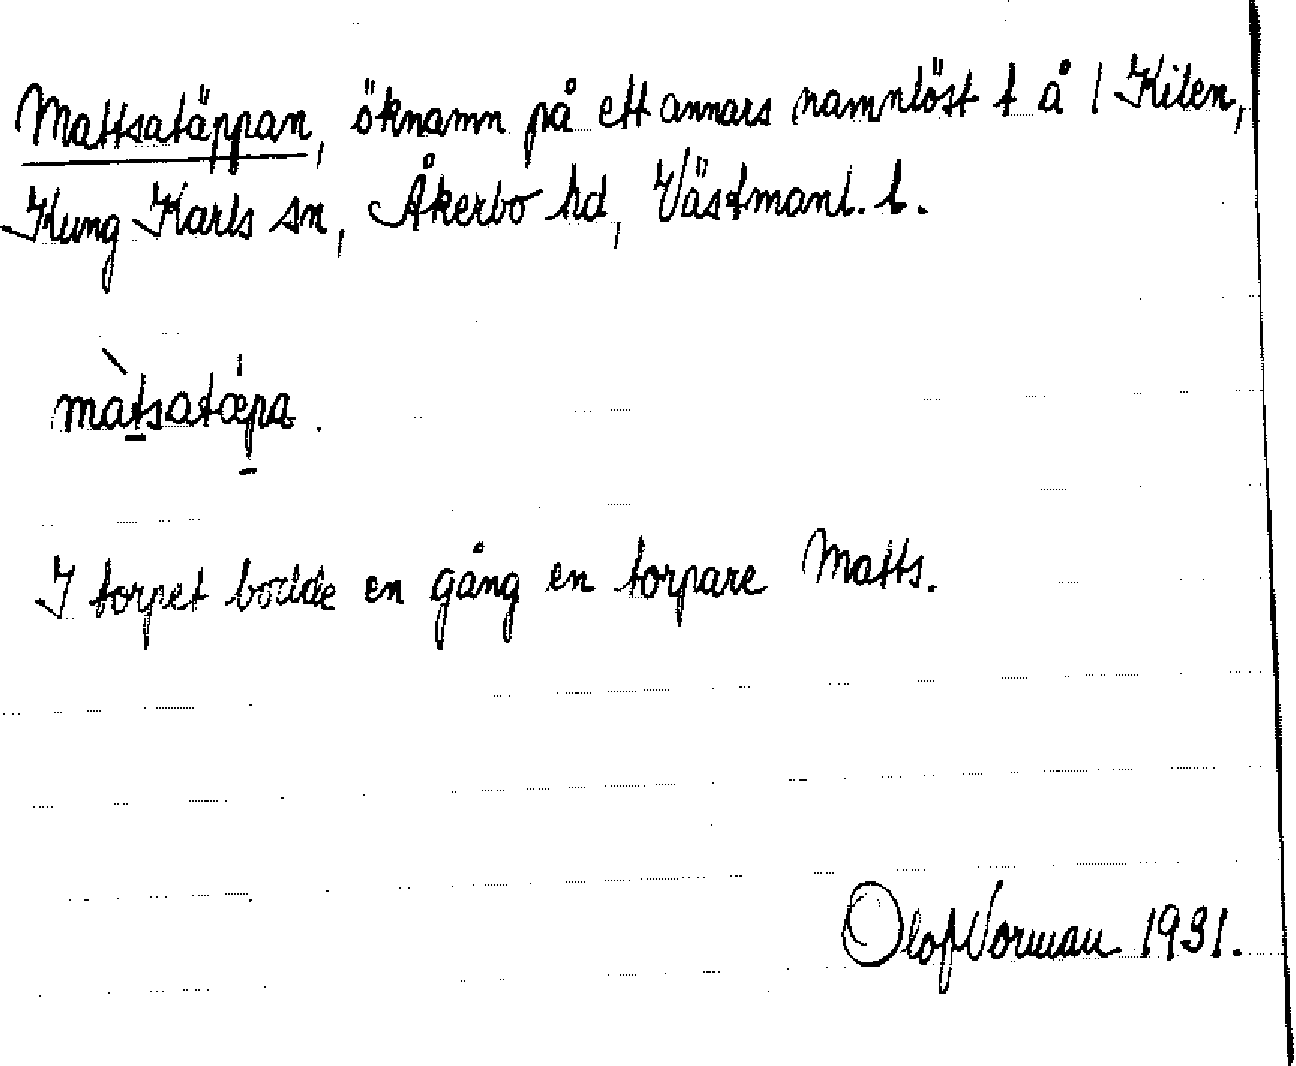 Mattsatäppan, öknamn på ett annars namnlöst t å 1 Kilen,
Kung Karls sn, Åkerbo hd, Västmanl. l.
màtsatæpa.
I torpet bodde en gång en torpare Matts.
Olof Norman 1931.